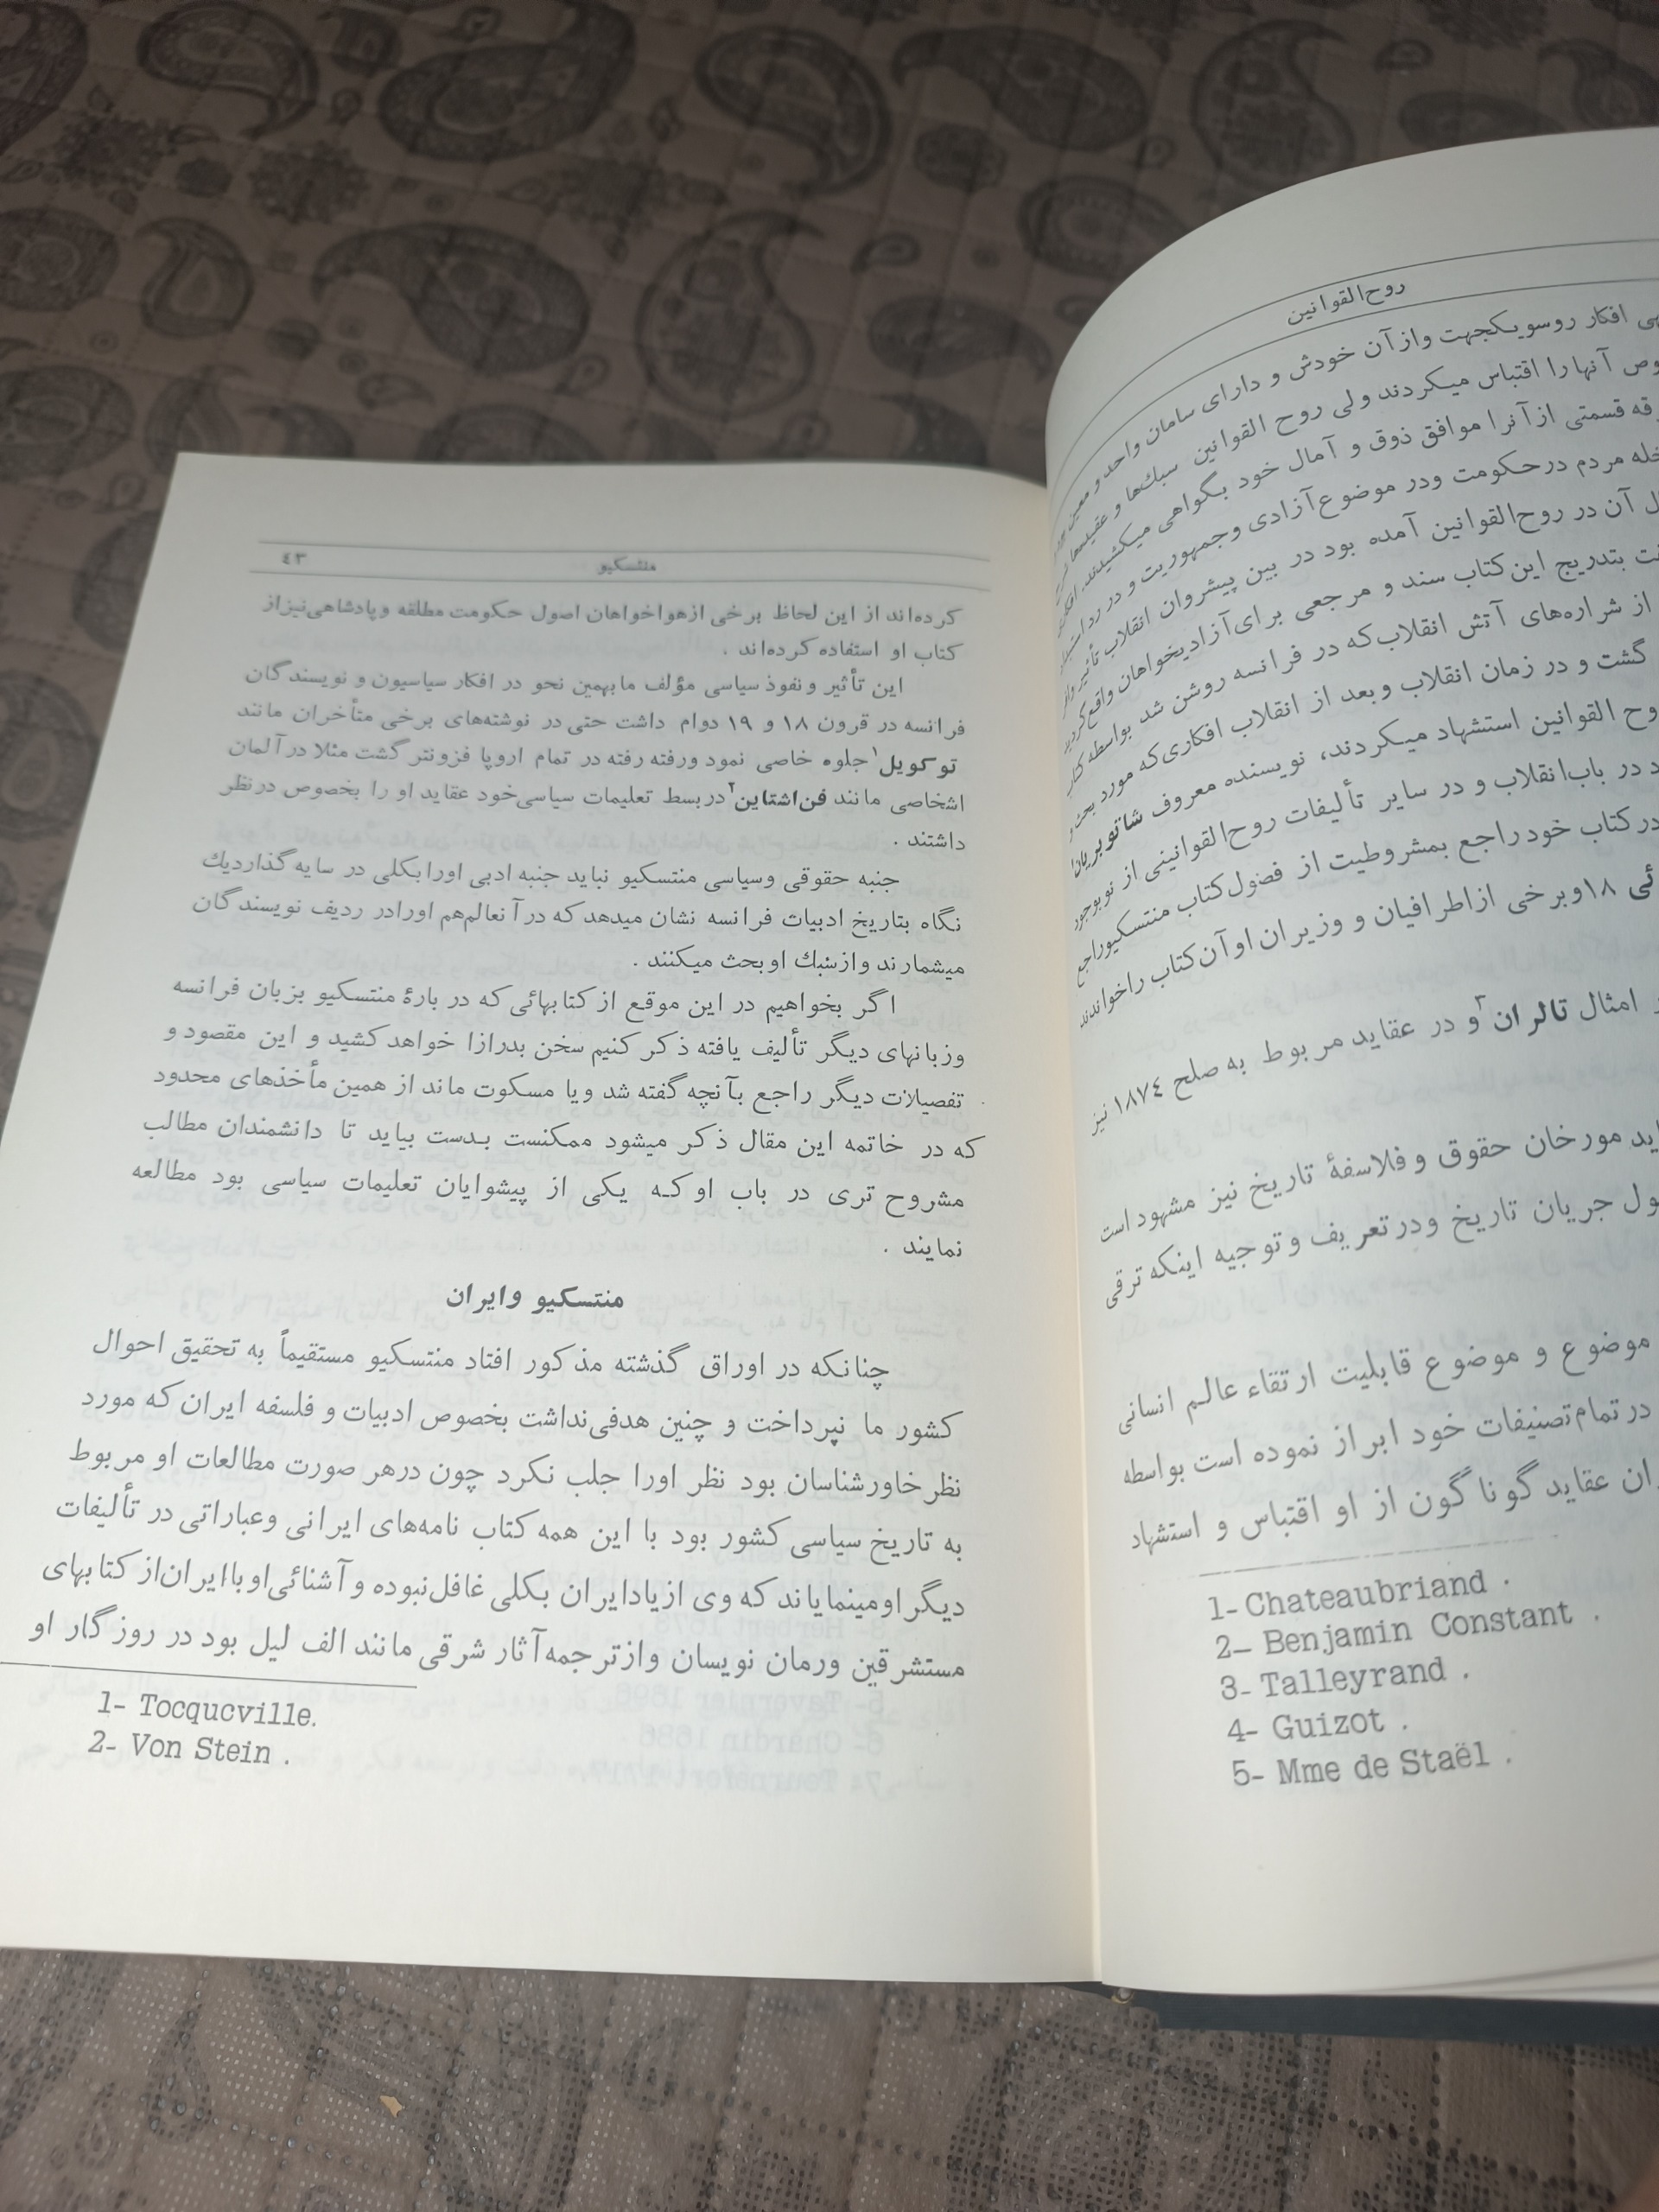 روح‌القوانین
افکار روسو یکجهت و از آن خودش و دارای سامان واحد و معین
آنها را اقتباس میکردند ولی روح القوانین سبك‌ها و عقیده‌ها
قسمتی از آنرا موافق ذوق و آمال خود بگواهی میکشیدند.
مردم در حکومت و در موضوع آزادی و جمهوریت و در رد
آن در روح‌القوانین آمده بود در بین پیشروان انقلاب تأثیر
بتدریج این کتاب سند و مرجعی برای آزادیخواهان واقع گردید
از شراره‌های آتش انقلاب که در فرانسه روشن شد بواسطه
گشت و در زمان انقلاب و بعد از انقلاب افکاری که مورد بحث
القوانین استشهاد میکردند، نویسنده معروف شاتوبریان۱
در باب انقلاب و در سایر تألیفات روح‌القوانینی از نو بوجود
در کتاب خود راجع بمشروطیت از فصول کتاب منتسکیو راجع
۱۸ و برخی از اطرافیان و وزیران او آن کتاب را خواندند
امثال تالران۳ و در عقاید مربوط به صلح ۱۸۷٤ نیز
مورخان حقوق و فلاسفهٔ تاریخ نیز مشهود است
جریان تاریخ و در تعریف و توجیه اینکه ترقی
موضوع و موضوع قابلیت ارتقاء عالم انسانی
در تمام تصنیفات خود ابراز نموده است بواسطه
عقاید گوناگون از او اقتباس و استشهاد
1- Chateaubriand .
2- Benjamin Constant .
3- Talleyrand .
4- Guizot .
5- Mme de Staël .
منتسکیو ٤۳
کرده‌اند از این لحاظ برخی ازهواخواهان اصول حکومت مطلقه و پادشاهی نیز از
کتاب او استفاده کرده‌اند .
این تأثیر و نفوذ سیاسی مؤلف ما بهمین نحو در افکار سیاسیون و نویسندگان
فرانسه در قرون ۱۸ و ۱۹ دوام داشت حتی در نوشته‌های برخی متأخران مانند
توکویل۱ جلوه خاصی نمود ورفته رفته در تمام اروپا فزونتر گشت مثلا در آلمان
اشخاصی مانند فن‌اشتاین۲ در بسط تعلیمات سیاسی خود عقاید او را بخصوص در نظر
داشتند .
جنبه حقوقی وسیاسی منتسکیو نباید جنبه ادبی اورا بکلی در سایه گذارد یك
نگاه بتاریخ ادبیات فرانسه نشان میدهد که در آنعالم هم اورا در ردیف نویسندگان
میشمارند و از سبك او بحث میکنند .
اگر بخواهیم در این موقع از کتابهائی که در بارهٔ منتسکیو بزبان فرانسه
وزبانهای دیگر تألیف یافته ذکر کنیم سخن بدرازا خواهد کشید و این مقصود و
تفصیلات دیگر راجع بآنچه گفته شد ویا مسکوت ماند از همین مأخذهای محدود
که در خاتمه این مقال ذکر میشود ممکنست بدست بیاید تا دانشمندان مطالب
مشروح تری در باب او که یکی از پیشوایان تعلیمات سیاسی بود مطالعه
نمایند .
منتسکیو وایران
چنانکه در اوراق گذشته مذکور افتاد منتسکیو مستقیماً به تحقیق احوال
کشور ما نپرداخت و چنین هدفی نداشت بخصوص ادبیات و فلسفه ایران که مورد
نظر خاورشناسان بود نظر اورا جلب نکرد چون درهر صورت مطالعات او مربوط
به تاریخ سیاسی کشور بود با این همه کتاب نامه‌های ایرانی وعباراتی در تألیفات
دیگر او مینمایاند که وی ازیاد ایران بکلی غافل نبوده و آشنائی او با ایران از کتابهای
مستشرقین ورمان نویسان وازترجمه آثار شرقی مانند الف لیل بود در روزگار او
1- Tocqucville.
2- Von Stein .